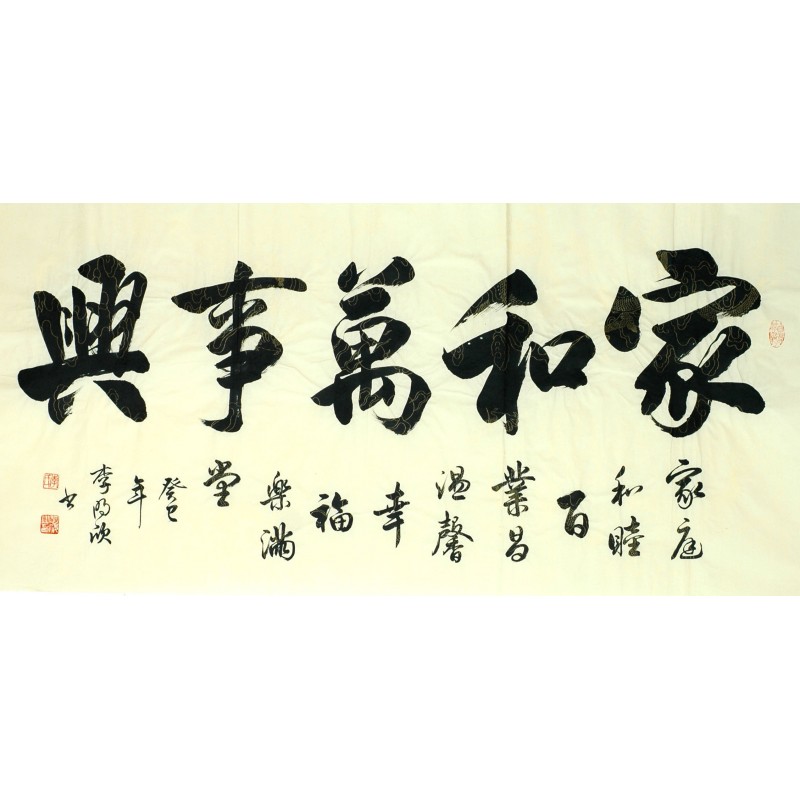 家和萬事興
家庭
和睦
百
業昌
溫馨
幸
福
樂滿
堂
癸巳
年
李明欣
书